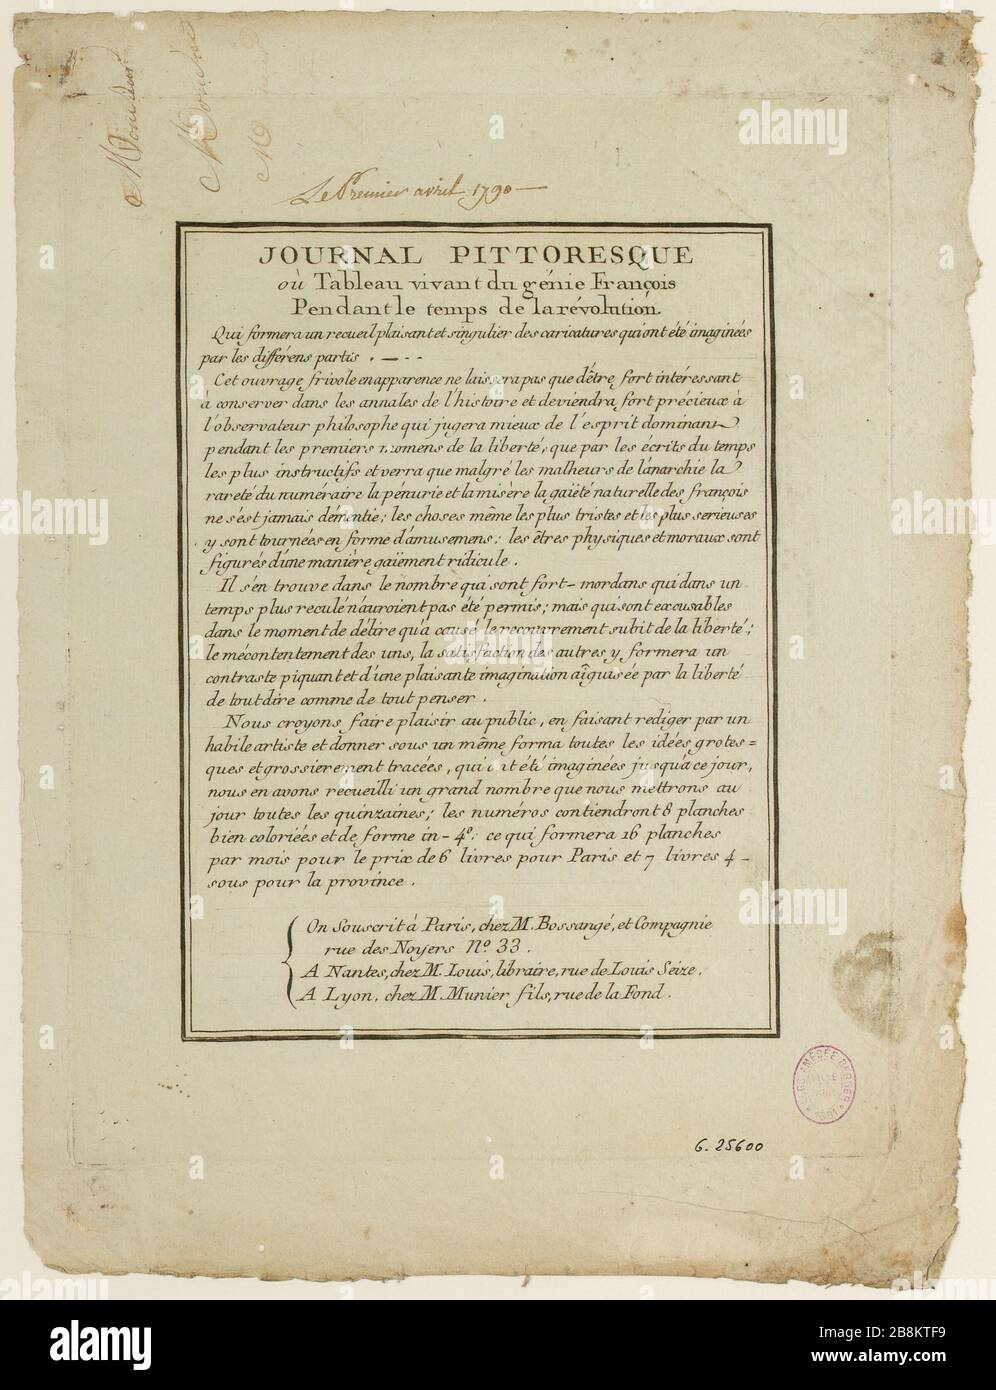 Monsieur
Monsieur
Le Premier avril 1790
JOURNAL PITTORESQUE
où Tableau vivant du génie François
Pendant le temps de la révolution.
Qui formera un recueil plaisant et singulier des caricatures qui ont été imaginées
par les différens partis . — - -
Cet ouvrage frivole en apparence ne laissera pas que d'être fort intéressant
à conserver dans les annales de l'histoire et deviendra fort précieux à
l'observateur philosophe qui jugera mieux de l'esprit dominant
pendant les premiers momens de la liberté, que par les écrits du temps
les plus instructifs et verra que malgré les malheurs de l'anarchie la
rareté du numéraire la pénurie et la misère la gaïété naturelle des françois
ne s'est jamais démentie; les choses même les plus tristes et les plus serieuses
y sont tournées en forme d'amusemens; les êtres physiques et moraux sont
figurés d'une manière gaïement ridicule.
Il s'en trouve dans le nombre qui sont fort-mordans qui dans un
temps plus reculé n'auroient pas été permis; mais qui sont excusables
dans le moment de délire qu'a causé le recouvrement subit de la liberté;
le mécontentement des uns, la satisfaction des autres y formera un
contraste piquant et d'une plaisante imagination aîguisée par la liberté
de tout dire comme de tout penser.
Nous croyons faire plaisir au public, en faisant rediger par un
habile artiste et donner sous un même forma toutes les idées grotes=
ques et grossierement tracées, qui ont été imaginées jusqu'à ce jour,
nous en avons recueilli un grand nombre que nous mettrons au
jour toutes les quinzaines; les numéros contiendront 8 planches
bien coloriées et de forme in-4º; ce qui formera 16 planches
par mois pour le prix de 6 livres pour Paris et 7 livres 4-
sous pour la province.
On Souscrit à Paris, chez M. Bossangé, et Compagnie
rue des Noyers Nº 33.
A Nantes, chez M. Louis, libraire, rue de Louis Seize.
A Lyon, chez M. Munier fils, rue de la Fond.
AMÉDÉE BERGER
1881
G. 25600
alamy
alamy
Image ID: 2B8KTF9
www.alamy.com